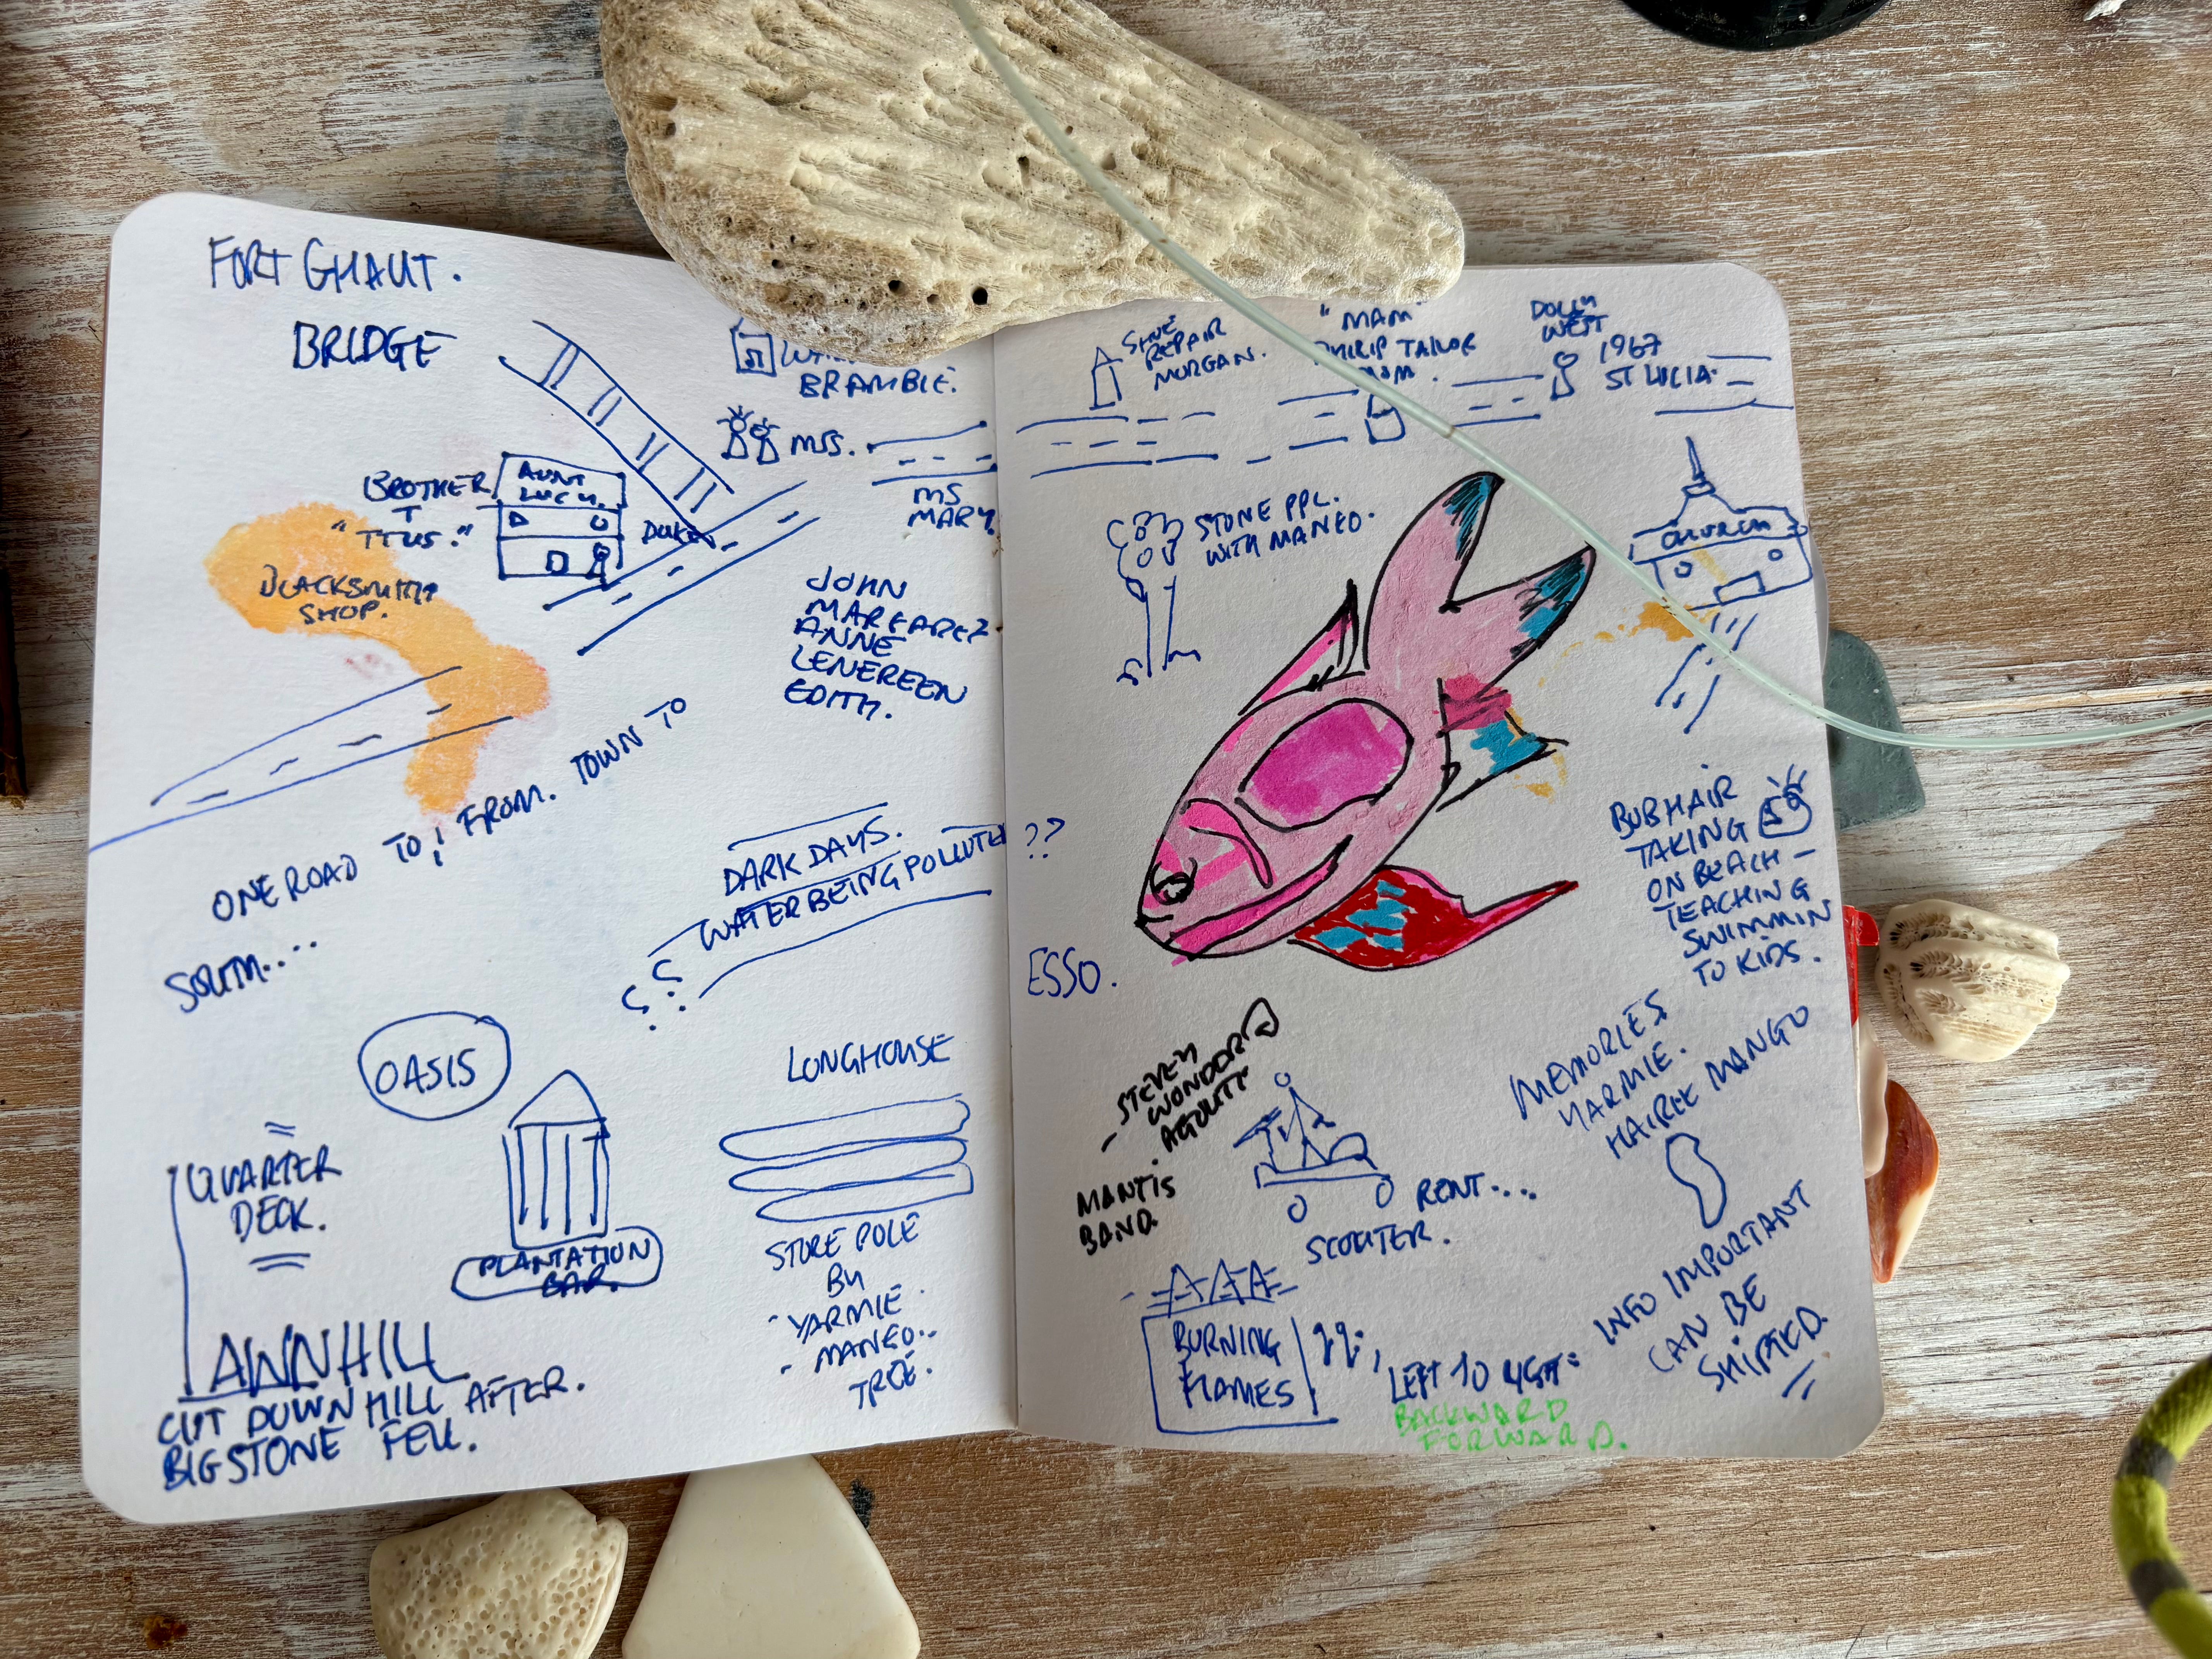 FORT GHAUT.
BRIDGE
BRAMBLE.
MSS.
MS
MARY.
BROTHER
T
"TTUS."
AUNT
LUCY.
DUKE
BLACKSMITH
SHOP.
JOHN
MARGARET
ANNE
LENEREEN
EDITH.
ONE ROAD TO; FROM. TOWN TO
SOUTH....
DARK DAYS.
WATER BEING POLLUTED ??
OASIS
QUARTER
DECK.
PLANTATION
BAR.
LONGHOUSE
STORE POLE
BY
- YARMIE.
- MANGO..
TREE.
LAWNHILL
CUT DOWN HILL AFTER.
BIG STONE FELL.
SHOE
REPAIR
MORGAN.
"MAM"
PHILIP TAILOR
DOLLY
WEST
1967
ST LUCIA.
STONE PPL.
WITH MANGO.
CHURCH
BUBHAIR
TAKING
ON BEACH -
TEACHING
SWIMMIN
TO KIDS.
ESSO.
- STEVEY
WONDER
AGOUTY
MANTIS
BAND.
RENT....
SCOOTER.
MEMORIES
YARMIE.
HAIREE MANGO
AAA
BURNING
FLAMES
LEFT TO
BACKWARD
FORWARD.
INFO IMPORTANT
CAN BE
SHIPTED.